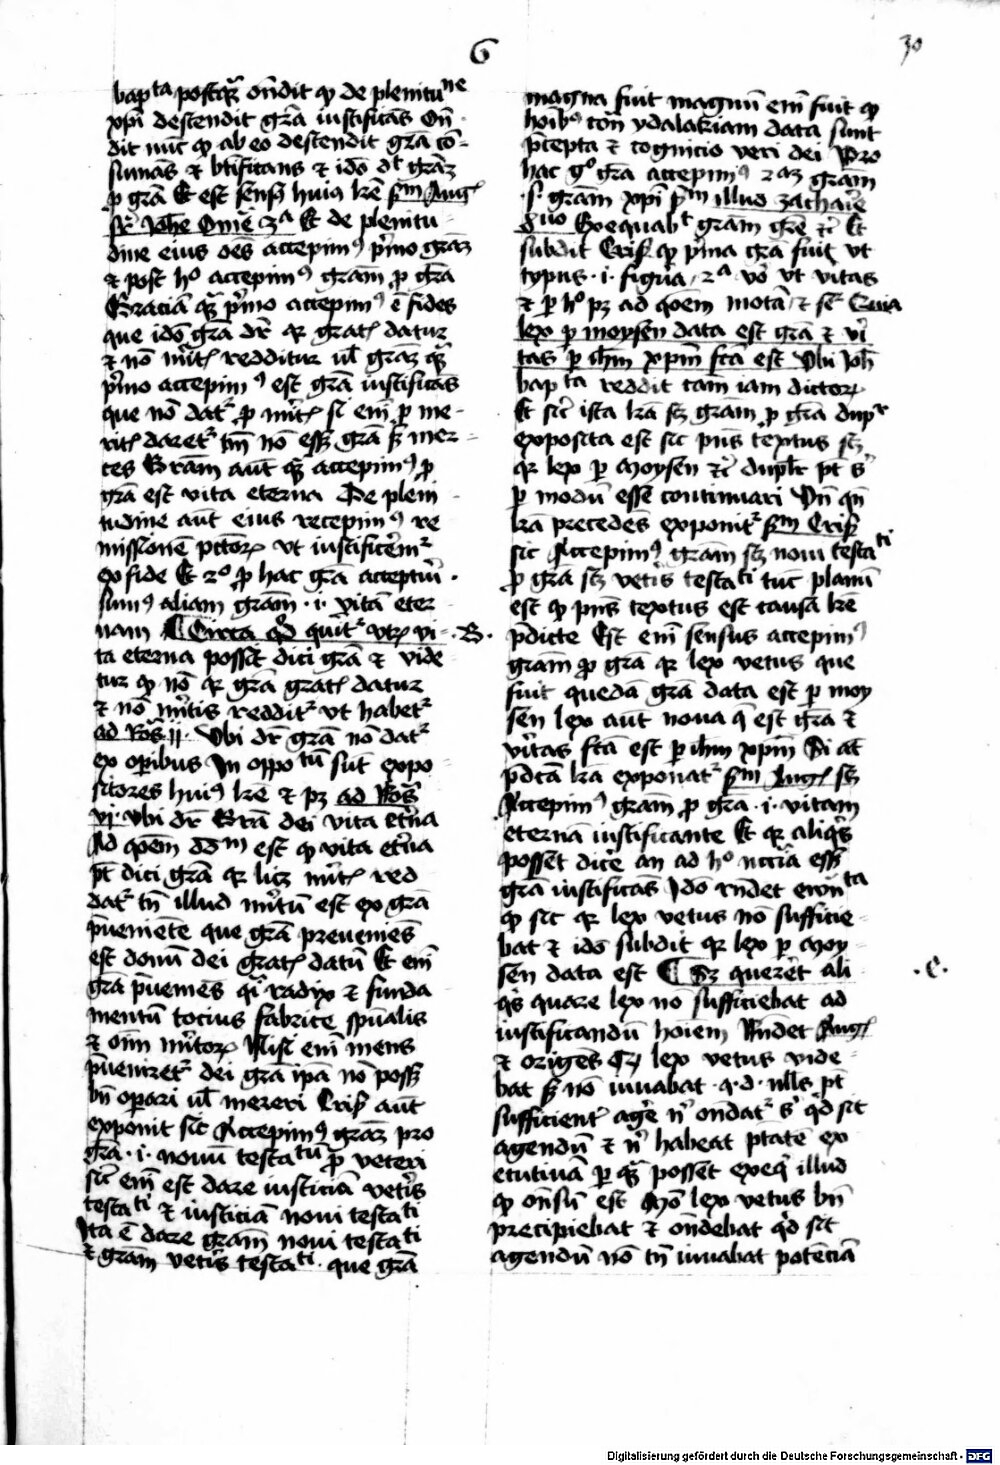 G
30
bapta postquam ondit qp de plenitune
xpi descendit gra iustificans On
dit nunc qp ab eo descendit gra con
sumans et btificans et ido dt gram
p gra Et est sensus huius lre scdm Aug
sr Johe Omel 3a Et de plenitu
dine eius oes accepimus primo gram
et post ho accepimus gram p gra
Gracia quam primo accepimus e fides
que ido gra dr qr gratis datur
et no meritis redditur ul gram quam
primo accepimus est gra iustificans
que no datur p meritis si eni p me
ritis daretur tunc no esset gra sed mer
ces Gram aut quam accepimus p
gra est vita eterna De pleni
tudine aut eius recepimus re
missione pctorum ut iustificemur
ex fide Et 2o p hac gra accepturi
sumus aliam gram .i. vita eter
nam Circa qd queritur utrum vi .B.
ta eterna posset dici gra et vide
tur qp no qr gra gratis datur
et no meritis redditur ut habetur
ad Ros ii. Ubi dr gra no datur
ex operibus In oppotum sunt expo
sitores huius lre et pz ad Ros
vi. ubi dr Gra dei vita eterna
Ad quem ddm est qp vita eterna
pt dici gra qr licet meritis red
datur tn illud meritum est ex gra
preueniente que gra preueniens
est donum dei gratis datum Et eni
gra preueniens qi radix et funda
mentum tocius fabrice spualis
et oim meritorum Nisi eni mens
preueniretur dei gra ipa no posset
bn operari ul mereri Cris aut
exponit sic Accepimus gram pro
gra .i. nouum testatum p veteri
sic eni est dare iusticia veteris
testati et iusticia noui testati
Ita e dare gram noui testati
et gram veteris testati. que gra
magna fuit magnum eni fuit qp
hoibus ton ydalatriam data sunt
precepta et cognicio veri dei Pro
hac go gra accepimus 2am gram
.s. gram xpi scdm illud zacharie
quo Exequabit gram gre etc Et
subdit Cris qp prima gra fuit ut
typus .i. figura 2a vo ut vitas
et p ho pz ad qoem mota et seq Quia
lex p moysen data est gra et veri
tas p ihm xpm fca est Ubi Joh
bapta reddit cam iam dictorum
Et sic ista lra scz gram p gra dupr
exposita est sic pns textus scz
qr lex p Moysen etc dupr pt s
p modum esse continuari Un qn
lra precedens exponitur scdm Cris
sic Accepimus gram scz noui testati
p gra scz veteris testati tuc planum
est qp pns textus est causa lre
predicte Est eni sensus accepimus
gram p gra qr lex vetus que
fuit queda gra data est p moy
sen lex aut noua que est gra et
veritas fca est p ihm xpm Si at
predcta lra exponatur scdm Aug scz
Accepimus gram p gra .i. vitam
eterna iustificante Et qr aliquis
posset dicere an ad ho nccria esset
gra iustificans Ido rndet ewnta
qp sic qr lex vetus no sufficie
bat et ido subdit qr lex p Moy
sen data est Sz quereret ali .C.
qs quare lex no sufficiebat ad
iustificandum hoiem Rndet Aug
et origes Qz lex vetus vide
bat sed no iuuabat .q.d. nlls pt
sufficienter agere ni ondatur s quid sit
agendum et ni habeat ptate ex
ecutiua p quam posset exequi illud
qp onsum est Mo lex vetus bn
precipiebat et ondebat quid sit
agendum no tn iuuabat potencia
Digitalisierung gefördert durch die Deutsche Forschungsgemeinschaft - DFG